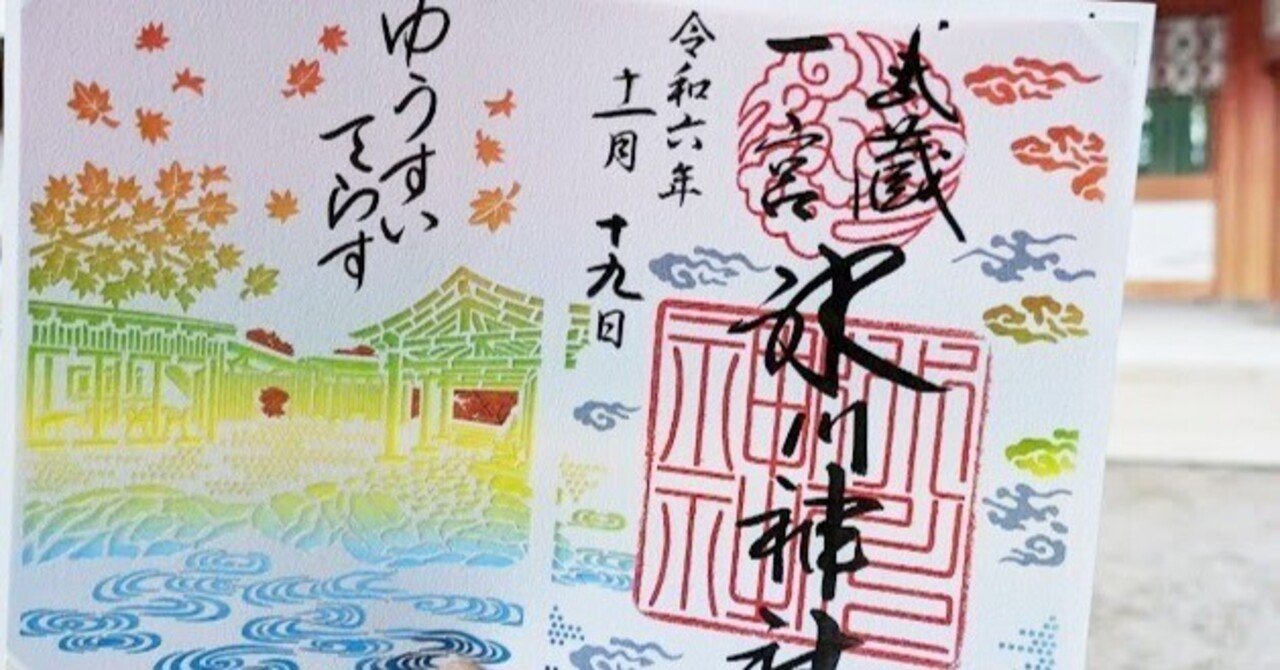 武蔵
一宮
氷川神社
令和六年
十一月 十九日
ゆうすい
てらす